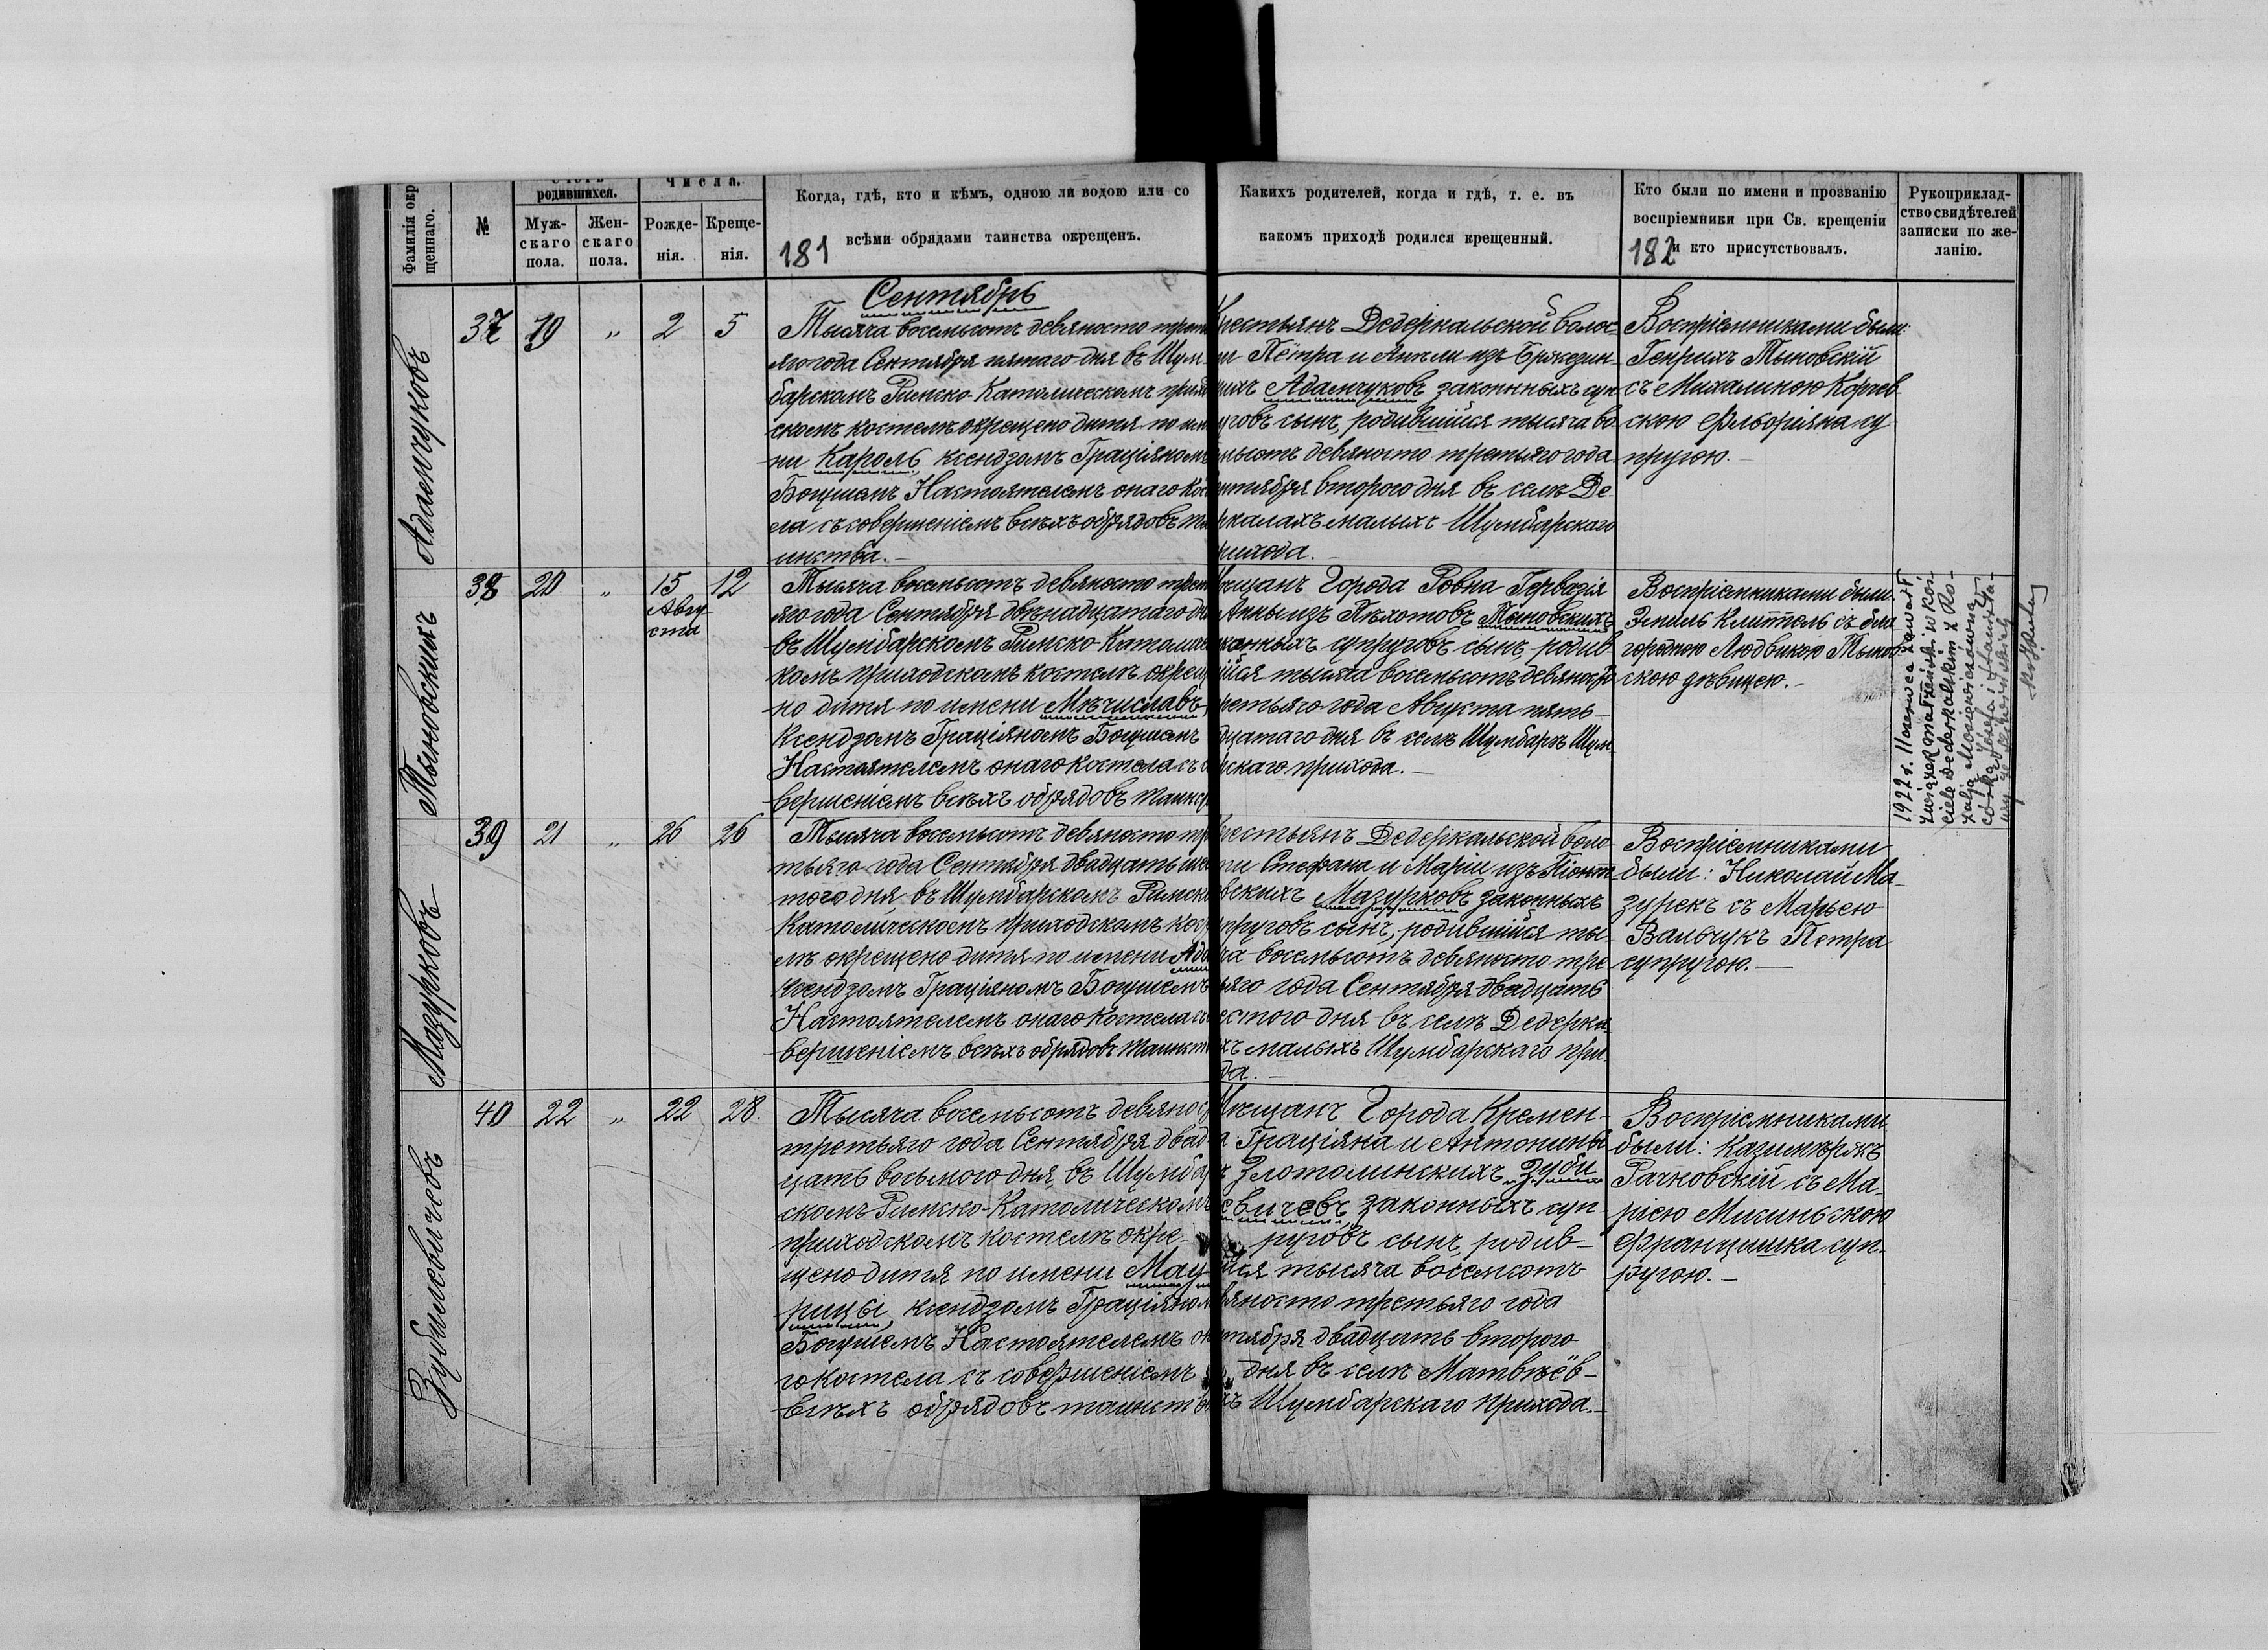 Фамилія окр
щеннаго.
№
родившихся.
Муж-
скаго
пола.
Жен-
скаго
пола.
Числа.
Рожде-
нія.
Креще-
нія.
Когда, гдѣ, кто и кѣмъ, одною ли водою или со
всѣми обрядами таинства окрещенъ.
181
Какихъ родителей, когда и гдѣ, т. е. въ
какомъ приходѣ родился крещенный.
Кто были по имени и прозванію
воспріемники при Св. крещеніи
и кто присутствовалъ.
182
Рукоприклад-
ство свидѣтелей
записки по же-
ланію.
Адамчуковъ
37 19 „ 2 5
Сентябрь
Тысяча восемьсотъ девяносто трет
яго года Сентября пятаго дня въ Шум-
барскомъ Римско-Католическомъ приход
скомъ костелѣ окрещено дитя по име
ни Кароль, ксендзомъ Граціяномъ
Боцушемъ Настоятелемъ онаго кос
ела съ совершеніемъ всѣхъ обрядовъ та
инства.-
рестьянъ Дедеркальской волос-
и Петра и Анели изъ
ихъ Адамчуковъ законныхъ суп
уговъ сынъ, родившійся тысяча во
мьсотъ девяносто третьяго года
нтября второго дня въ селѣ Де-
ркалахъ малыхъ Шумбарскаго
рихода.-
Воспріемниками были:
Генрихъ Тыновскій
съ Михалиною
скою Фльоріяна су
пругою.-
Тыновскихъ
38 20 „ 15
Авгу
ста
12
Тысяча восемьсотъ девяносто трет
яго года Сентября двѣнадцатаго дн
въ Шумбарскомъ Римско-Католичес
комъ приходскомъ костелѣ окрещ
но дитя по имени Мѣчиславъ,
Ксендзомъ Граціяномъ Боцушемъ
Настоятелемъ онаго костела съ с
вершеніемъ всѣхъ обрядовъ таинс
ѣщанъ Города Ровна Гервазія
Анны изъ Пѣхотовъ Тыновскихъ
конныхъ супруговъ сынъ, родив
ійся тысяча восемьсотъ девяносто
ретьяго года Августа пять-
дцатаго дня въ селѣ Шумбарѣ Шум
рскаго прихода.-
Воспріемниками были:
Эмиль Клиттель съ бла
городною Людвикою Тынов
скою дѣвицею.-
1922 r. 11 czerwca zawarł
związek małżeński w koś-
ciele dederkalskim z Ro-
zalją
córką Józefa i
Мазурковъ
39 21 „ 26 26
Тысяча восемьсотъ девяносто тре
тьяго года Сентября двадцать шес
того дня, въ Шумбарскомъ Римско
Католическомъ приходскомъ кост
лѣ окрещено дитя по имени Ада
ксендзомъ Граціяномъ Боцушемъ
Настоятелемъ онаго костела съ
вершеніемъ всѣхъ обрядовъ таинств
рестьянъ Дедеркальской воло
ти Стефана и Маріи изъ
вскихъ Мазурковъ законныхъ
пруговъ сынъ, родившійся ты-
ча восемьсотъ девяносто тре
ьяго года Сентября двадцать
естого дня въ селѣ Дедерка
хъ малыхъ Шумбарскаго при
да.-
Воспріемниками
были: Николай Ма-
зурекъ съ Марьею
Вальчукъ Петра
супругою.-
Зубилевичевъ
40 22 „ 22 28.
Тысяча восемьсотъ девянос
третьяго года Сентября двад
цать восьмого дня, въ Шумбар
скомъ Римско-Католическомъ
приходскомъ костелѣ окре-
щено дитя по имени Мау-
рицы, ксендзомъ Граціяном
Боцушемъ Настоятелемъ он
го костела съ совершеніемъ
всѣхъ обрядовъ таинств
ѣщанъ Города Кремен-
а Граціяна и Антонины
ъ Злотолинскихъ Зуби
евичевъ законныхъ суп-
руговъ сынъ, родив-
йся тысяча восемсотъ
вяносто третьяго года
нтября двадцать второго
дня въ селѣ Матвѣёв-
хъ Шумбарскаго прихода.-
Воспріемниками
были: Казимѣржъ
Рачковскій съ Ма-
ріею Мисиньскою
Францишка суп-
ругою.-